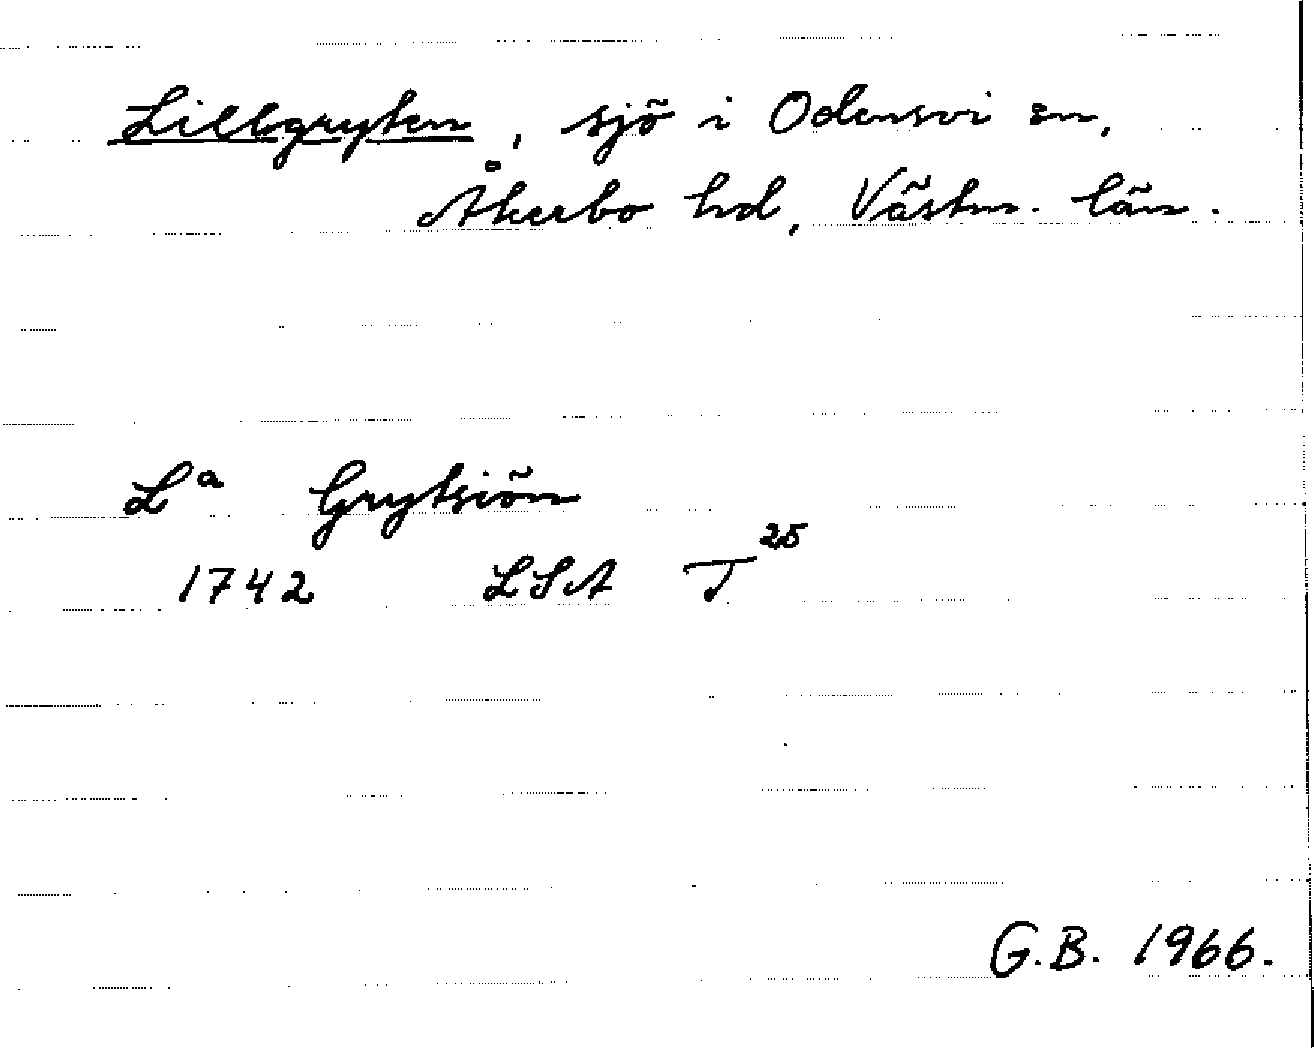 Lillgryten, sjö i Odensvi sn,
Åkerbo hd, Västm. län.
Lª Grytsiön
1742 LSA T²⁵
G.B. 1966.